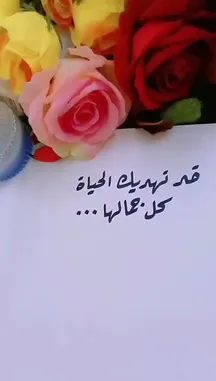 قد تهديك الحياة
كل جمالها ...